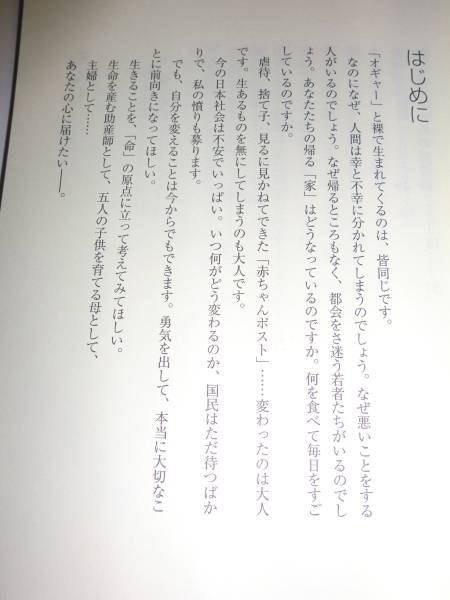 はじめに
「オギャー」と裸で生まれてくるのは、皆同じです。
なのになぜ、人間は幸と不幸に分かれてしまうのでしょう。なぜ悪いことをする
人がいるのでしょう。なぜ帰るところもなく、都会をさ迷う若者たちがいるのでし
ょう。あなたたちの帰る「家」はどうなっているのですか。何を食べて毎日をすご
しているのですか。
虐待、捨て子、見るに見かねてできた「赤ちゃんポスト」……変わったのは大人
です。生あるものを無にしてしまうのも大人です。
今の日本社会は不安でいっぱい。いつ何がどう変わるのか、国民はただ待つばか
りで、私の憤りも募ります。
でも、自分を変えることは今からでもできます。勇気を出して、本当に大切なこ
とに前向きになってほしい。
生きることを、「命」の原点に立って考えてみてほしい。
生命を産む助産師として、五人の子供を育てる母として、
主婦として……
あなたの心に届けたい――。